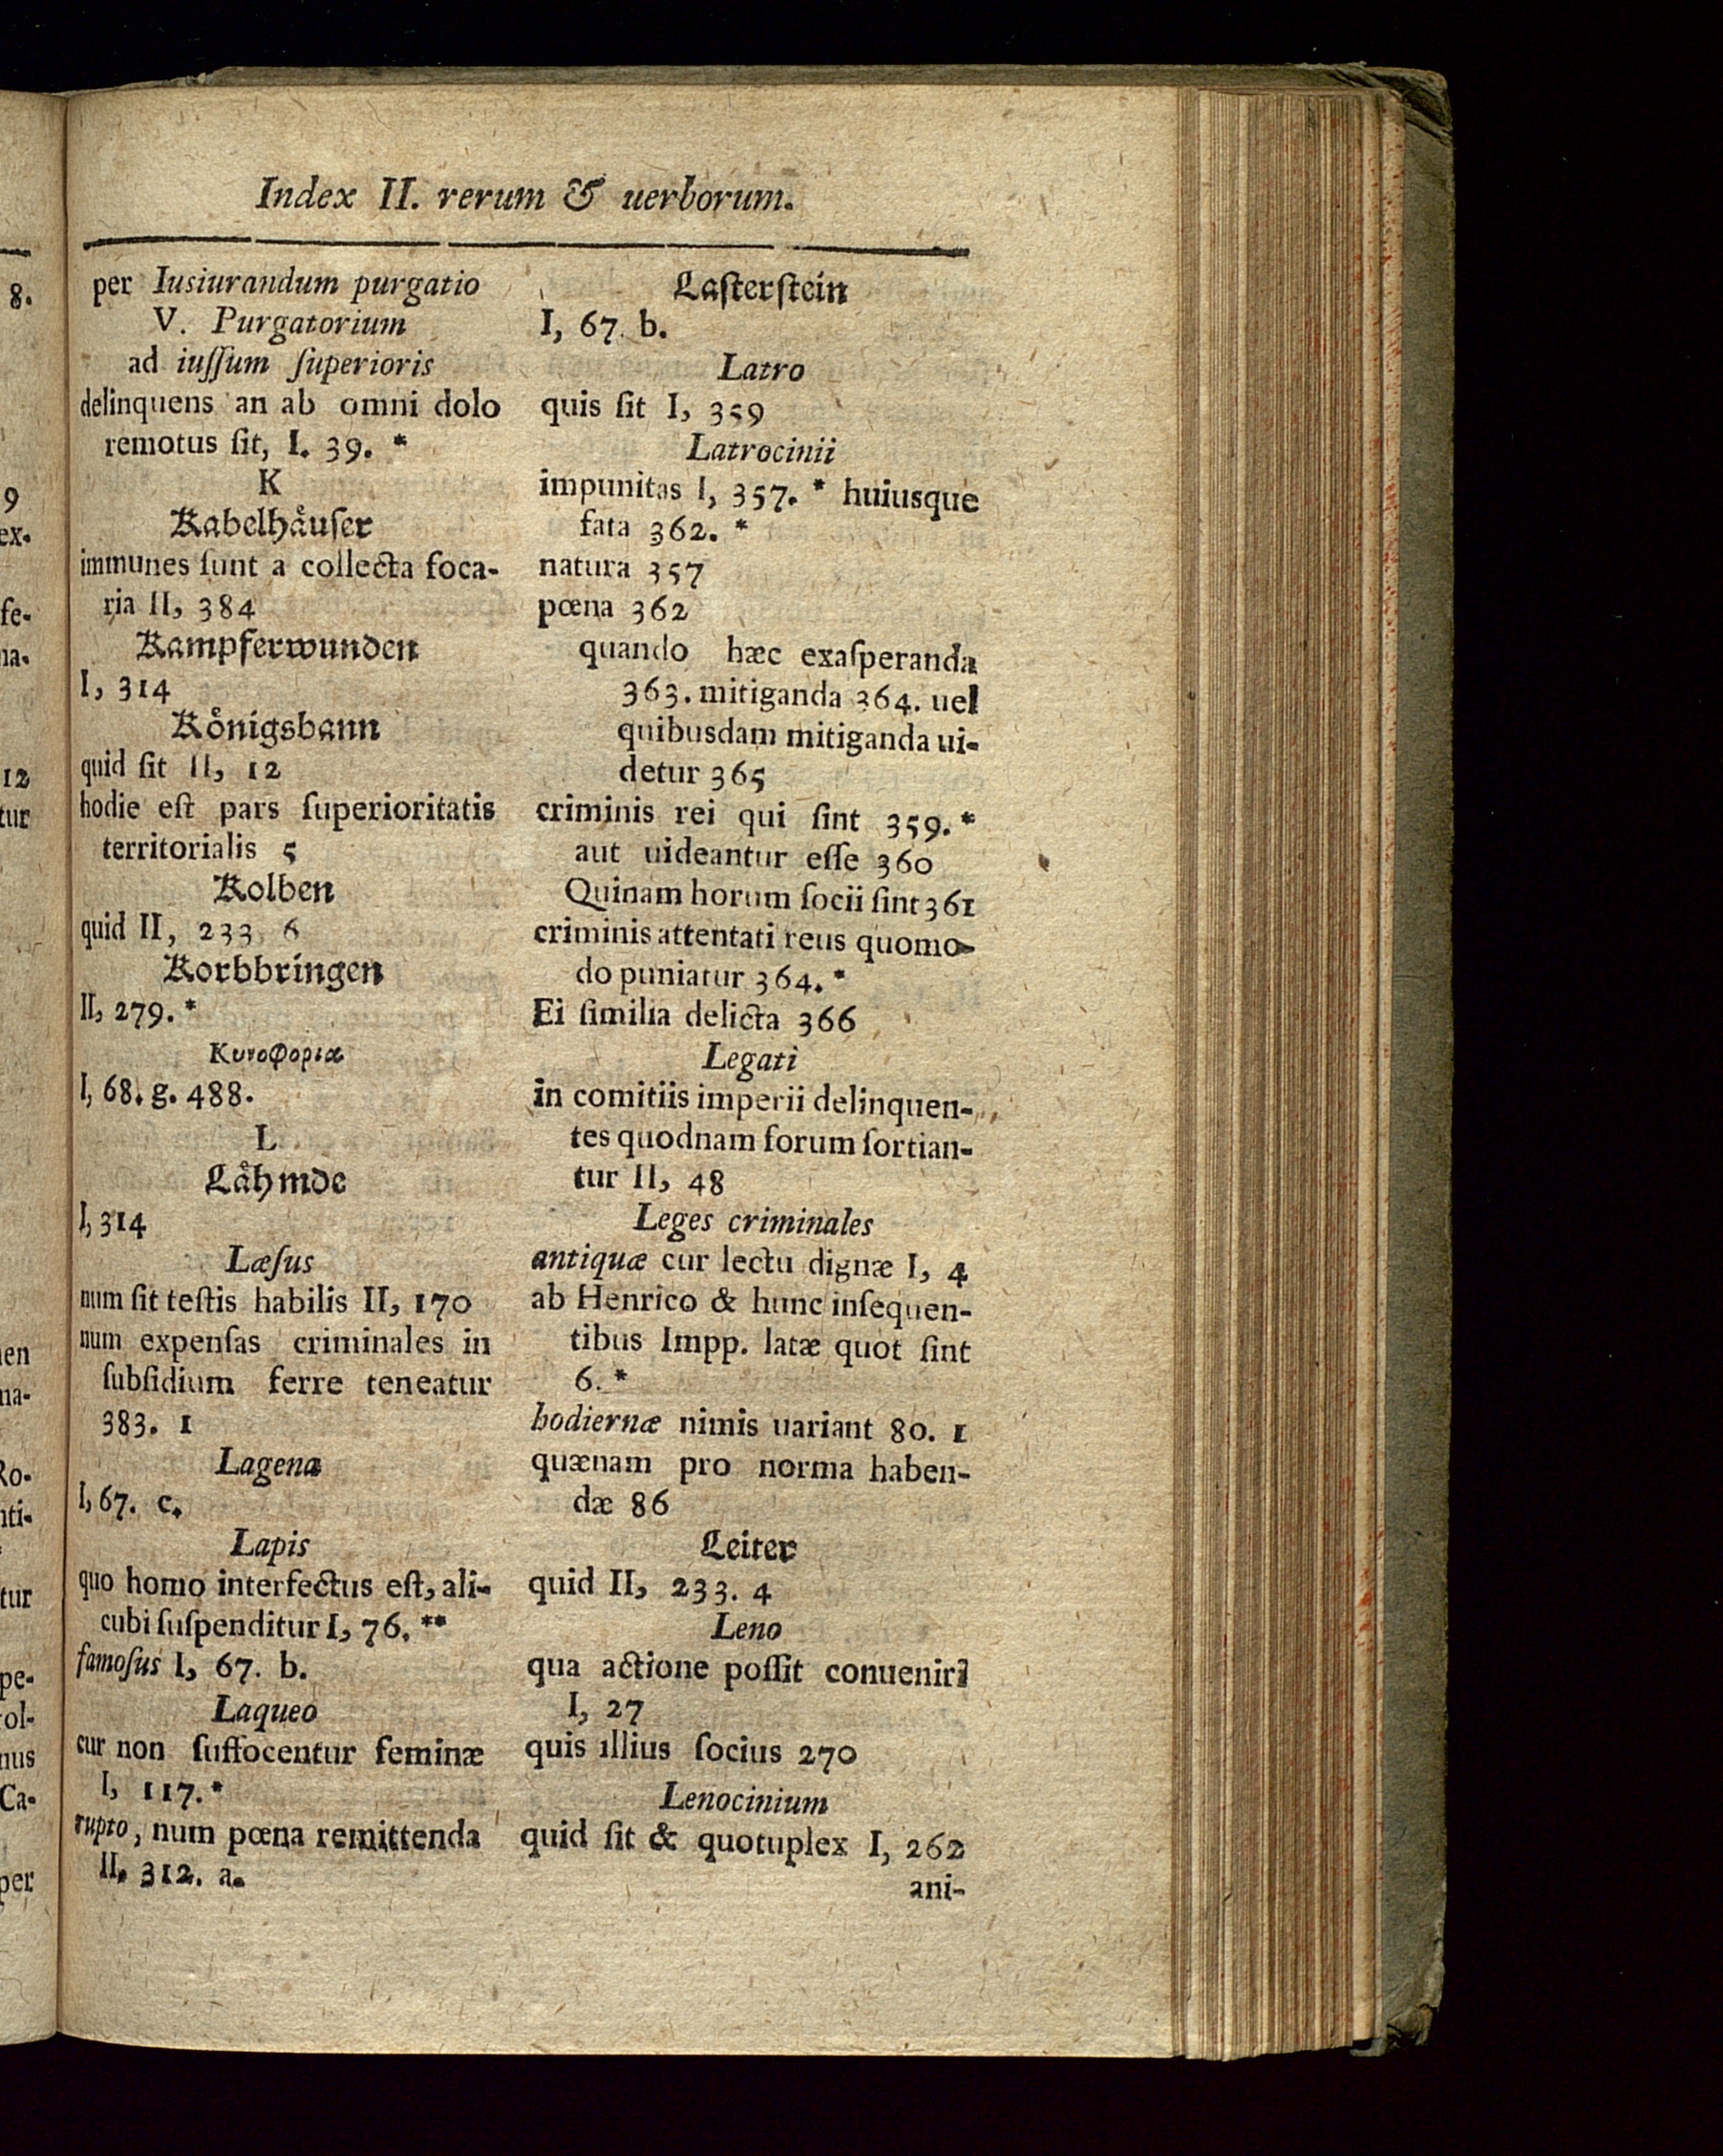 Index II. rerum & uerborum.
per Iusiurandum purgatio
V. Purgatorium
ad iuſſum ſuperioris
delinquens an ab omni dolo
remotus ſit, I. 39. *
K
Kabelhåuſer
immunes ſunt a collecta foca-
ria II, 384
Kampferwunden
I, 314
Kőnigsbann
quid ſit II, 12
hodie eſt pars ſuperioritatis
territorialis 5
Kolben
quid II, 233 6
Korbbringen
II, 279. *
Κυνοφορια
I, 68. g. 488.
L
Låhmde
I, 314
Læſus
num ſit teſtis habilis II, 170
num expenſas criminales in
ſubſidium ferre teneatur
383. 1
Lagena
I, 67. c.
Lapis
quo homo interfectus eſt, ali-
cubi ſuſpenditur I, 76. **
famoſus I, 67. b.
Laqueo
cur non ſuffocentur feminæ
I, 117. *
rupto, num pœna remittenda
II. 312. a.
Laſterſtein
I, 67. b.
Latro
quis ſit I, 359
Latrocinii
impunitas I, 357. * huiusque
fata 362. *
natura 357
pœna 362
quando hæc exaſperanda
363. mitiganda 364. uel
quibusdam mitiganda ui-
detur 365
criminis rei qui ſint 359. *
aut uideantur eſſe 360
Quinam horum ſocii ſint 361
criminis attentati reus quomo-
do puniatur 364. *
Ei ſimilia delicta 366
Legati
in comitiis imperii delinquen-
tes quodnam forum ſortian-
tur II, 48
Leges criminales
antiquæ cur lectu dignæ I, 4
ab Henrico & hunc inſequen-
tibus Impp. latæ quot ſint
6. *
hodiernæ nimis uariant 80. 1
quænam pro norma haben-
dæ 86
Leiter
quid II, 233. 4
Leno
qua actione poſſit conueniri
I, 27
quis illius ſocius 270
Lenocinium
quid ſit & quotuplex I, 262
ani-